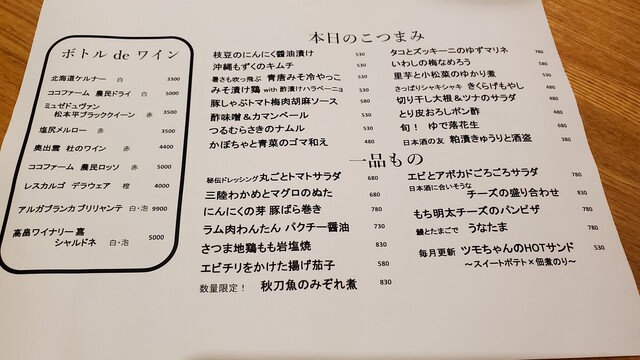 ボトル de ワイン
北海道ケルナー 白 3300
ココファーム 農民ドライ 白 5000
ミュゼドュヴァン
松本平ブラッククイーン 赤 3500
塩尻メルロー 赤 3500
奥出雲 杜のワイン 赤 4400
ココファーム 農民ロッソ 赤 5000
レスカルゴ デラウェア 橙 4000
アルガブランカ ブリリャンテ 白・泡 9900
高畠ワイナリー 嘉
シャルドネ 白・泡 5000
本日のこつまみ
枝豆のにんにく醤油漬け 530
沖縄もずくのキムチ 530
暑さも吹っ飛ぶ 青唐みそ冷やっこ 530
みそ漬け鶏 with 酢漬けハラペーニョ 530
豚しゃぶトマト梅肉胡麻ソース 580
酢味噌&カマンベール 530
つるむらさきのナムル 530
かぼちゃと青菜のゴマ和え 480
タコとズッキーニのゆずマリネ 780
いわしの梅なめろう 580
里芋と小松菜のゆかり煮 530
さっぱりシャキシャキ きくらげもやし 480
切り干し大根&ツナのサラダ 480
とり皮おろしポン酢 480
旬! ゆで落花生 680
日本酒の友 粕漬きゅうりと酒盗 380
一品もの
秘伝ドレッシング 丸ごとトマトサラダ 680
三陸わかめとマグロのぬた 680
にんにくの芽 豚ばら巻き 780
ラム肉わんたん パクチー醤油 730
さつま地鶏もも岩塩焼 830
エビチリをかけた揚げ茄子 580
数量限定! 秋刀魚のみぞれ煮 830
エビとアボカドごろごろサラダ 780
日本酒に合いそうな
チーズの盛り合わせ 830
もち明太チーズのパンピザ 780
鰻とたまごで うなたま 780
毎月更新 ツモちゃんのHOTサンド 530
~スイートポテト×佃煮のり~